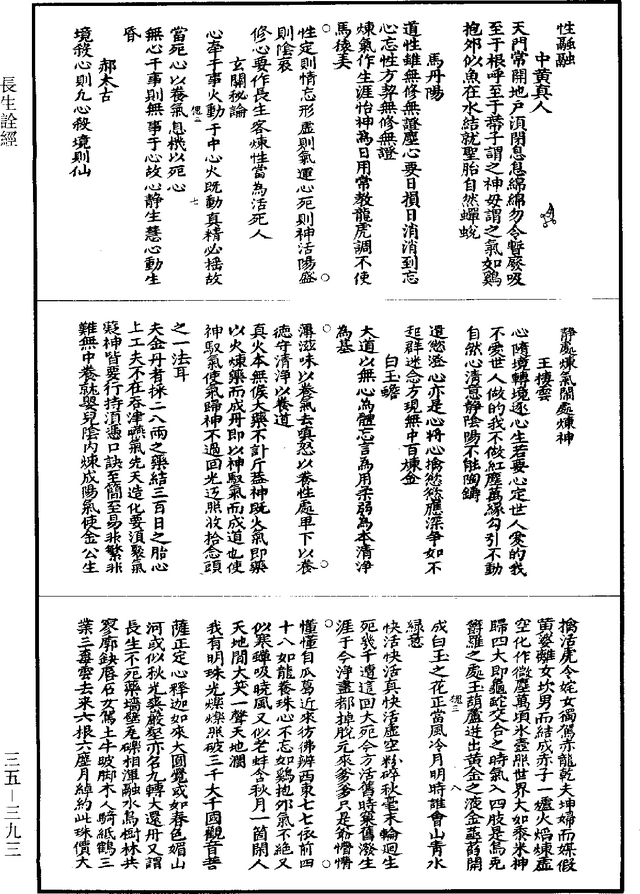 性融融
中黄真人
天門常開地戶須閉息息綿綿勿令暫厥吸
至于根呼至于蒂子謂之神母謂之氣如鷄
抱卵似魚在水結就聖胎自然蟬蛻
馬丹陽
道性雖無修無證塵心要日損日消消到忘
心忘性方契無修無證
煉氣作生涯怡神為日用常教龍虎調不使
馬猿弄
○
性定則情忘形虛則氣運心死則神活陽盛
則陰衰
○
修心要作長生客煉性當為活死人
玄關秘論
心牽于事火動于中心火既動真精必搖故
當死心以養氣息機以死心
無心于事則無事于心故心靜生慧心動生
昏
郝太古
境殺心則凡心殺境則仙
靜處煉氣鬧處煉神
王棲雲
心隨境轉境逐心生若要心定世人愛的我
不愛世人做的我不做紅塵萬緣勾引不動
自然心清意靜陰陽不能陶鑄
○
還慾澄心亦是心將心擒慾慾應深爭如不
起群迷念方現無中百煉金
白玉蟾
大道以無心為體忘言為用柔弱為本清淨
為基
○
薄滋味以養氣去嗔怒以養性處卑下以養
德守清淨以養道
○
真火本無候大藥不計斤蓋神既火氣即藥
以火煉藥而成丹即以神馭氣而成道也使
神馭氣使氣歸神不過回光返照收拾念頭
之一法耳
夫金丹者採二八兩之藥結三百日之胎心
上工夫不在吞津嚥氣先天造化要須聚氣
凝神皆要行持須憑口訣至簡至易非繁非
難無中養就嬰兒陰內煉成陽氣使金公生
擒活虎令姹女獨駕赤龍乾夫坤婦而媒假
黃婆離女坎男而結成赤子一爐火焰煉虛
空化作微塵萬頃冰壺照世界大如黍米神
歸四大即龜蛇交合之時氣入四肢是烏兔
欝羅之處玉葫蘆迸出黃金之液金菡萏開
成白玉之花正當風冷月明時誰會山青水
綠意
○
快活快活真快活虛空粉碎秋毫末輪迴生
死幾千遭這回大死今方活舊時窠舊潑生
涯于今淨盡都掉脫元來爹爹只是爺懵懵
懂懂自瓜葛近來彷彿辨西東七七依前四
十八如龍養珠心不忘如鷄抱卵氣不絕又
似寒蟬吸曉風又似老蚌含秋月一箇閑人
天地間大笑一聲天地濶
○
我有明珠光爍爍照破三千大千國觀音菩
薩正定心釋迦如來大圓覺或如春色媚山
河或似秋光爽巖壑亦名九轉大還丹又謂
長生不死藥墻壁瓦礫相渾融水鳥樹林共
寥廓缺唇石女駕土牛跛脚木人騎紙鶴三
業三毒雲去來六根六塵月綽約此珠價大
長生詮經
三五—三九三